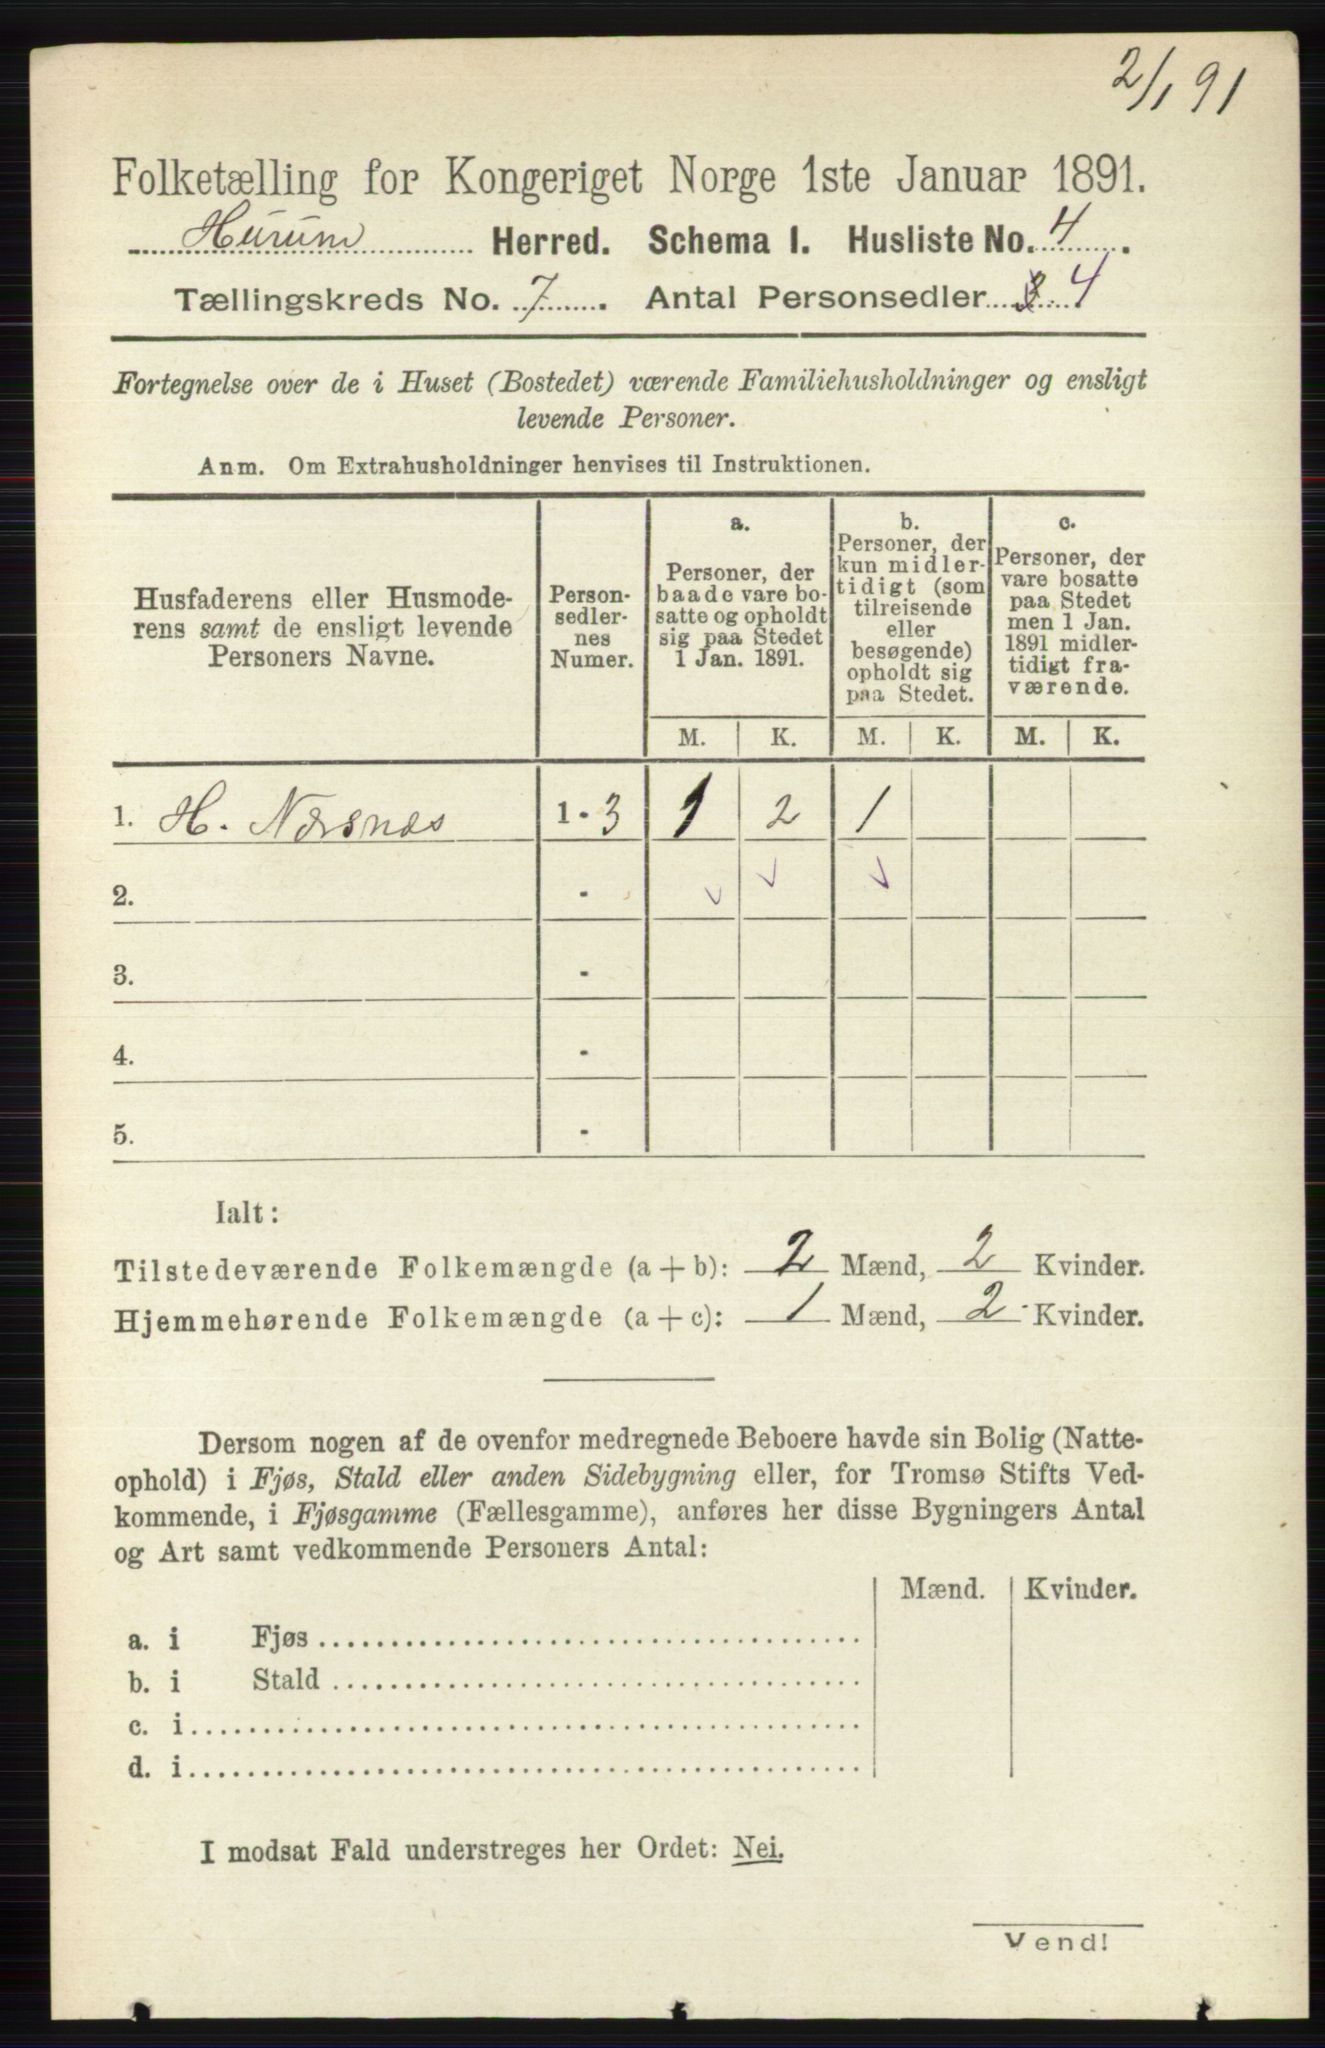 2/1 91
Folketælling for Kongeriget Norge 1ste Januar 1891.
Hurum Herred. Schema I. Husliste No. 4.
Tællingskreds No. 7. Antal Personsedler 3 4
Fortegnelse over de i Huset (Bostedet) værende Familiehusholdninger og ensligt
levende Personer.
Anm. Om Extrahusholdninger henvises til Instruktionen.
Husfaderens eller Husmode-
rens samt de ensligt levende
Personers Navne.
Person-
sedler-
nes
Numer.
a.
Personer, der
baade vare bo-
satte og opholdt
sig paa Stedet
1 Jan. 1891.
b.
Personer, der
kun midler-
tidigt (som
tilreisende
eller
besøgende)
opholdt sig
paa Stedet.
c.
Personer, der
vare bosatte
paa Stedet
men 1 Jan.
1891 midler-
tidigt fra-
værende.
M. K. M. K. M. K.
1. H. Nærsnæs 1 - 3 1 2 1
2. -
3. -
4. -
5. -
Ialt:
Tilstedeværende Folkemængde (a + b): 2 Mænd, 2 Kvinder.
Hjemmehørende Folkemængde (a + c): 1 Mænd, 2 Kvinder.
Dersom nogen af de ovenfor medregnede Beboere havde sin Bolig (Natte-
ophold) i Fjøs, Stald eller anden Sidebygning eller, for Tromsø Stifts Ved-
kommende, i Fjøsgamme (Fællesgamme), anføres her disse Bygningers Antal
og Art samt vedkommende Personers Antal:
Mænd. Kvinder.
a. i Fjøs
b. i Stald
c. i
d. i
I modsat Fald understreges her Ordet: Nei.
Vend!